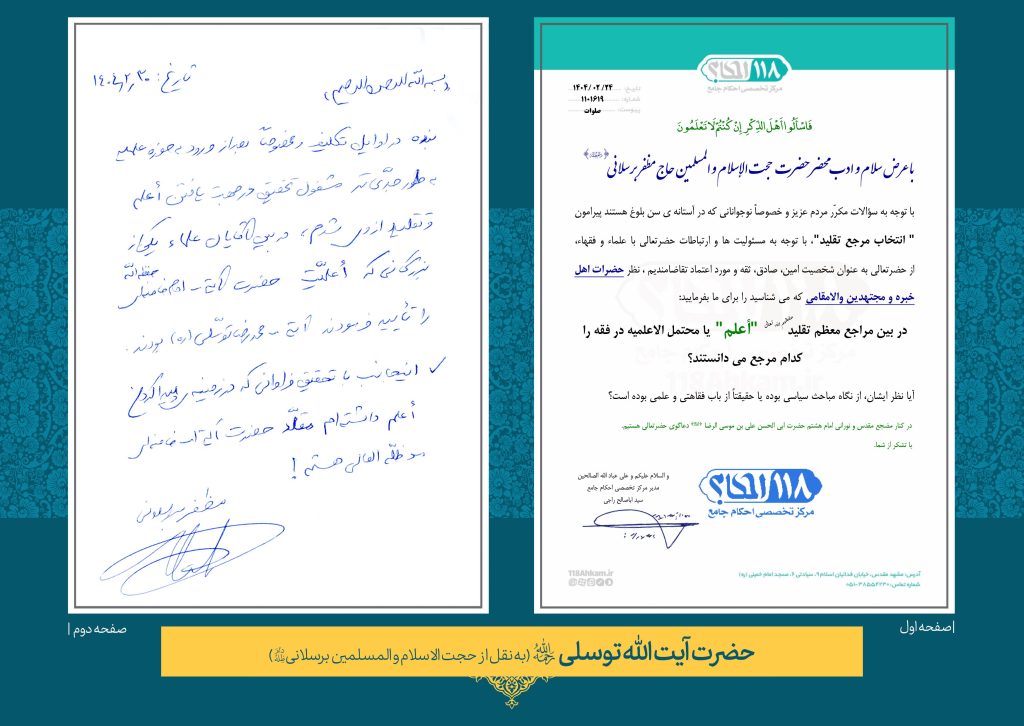 ۱۱۸ احکام
مرکز تخصصی احکام جامع
تاریخ: ۱۴۰۴/۰۲/۲۴
شماره: ۱۱۰۱۶۱۹
پیوست: صلوات
فَاسْأَلُوا أَهْلَ الذِّكْرِ إِنْ كُنْتُمْ لَا تَعْلَمُونَ
با عرض سلام و ادب محضر حضرت حجت الاسلام و المسلمین حاج مظفر برسلانی
با توجه به سؤالات مکرّر مردم عزیز و خصوصاً نوجوانانی که در آستانه ی سن بلوغ هستند پیرامون
" انتخاب مرجع تقلید"، با توجه به مسئولیت ها و ارتباطات حضرتعالی با علماء و فقهاء،
از حضرتعالی به عنوان شخصیت امین، صادق، ثقه و مورد اعتماد تقاضامندیم ، نظر حضرات اهل
خبره و مجتهدین والامقامی که می شناسید را برای ما بفرمایید:
در بین مراجع معظم تقلید "أعلم" یا محتمل الاعلمیه در فقه را
کدام مرجع می دانستند؟
آیا نظر ایشان، از نگاه مباحث سیاسی بوده یا حقیقتاً از باب فقاهتی و علمی بوده است؟
در کنار مضجع مقدس و نورانی امام هشتم حضرت ابی الحسن علی بن موسی الرضا دعاگوی حضرتعالی هستیم.
با تشکر از شما.
و السلام علیکم و علی عباد الله الصالحین
مدیر مرکز تخصصی احکام جامع
سید اباصالح راجی
۱۱۸ احکام
مرکز تخصصی احکام جامع
118Ahkam.ir
آدرس: مشهد مقدس، خیابان فدائیان اسلام ۹، سیادتی ۶، مسجد امام خمینی (ره)
شماره تماس: ۰۵۱-۳۸۵۵۴۲۳۰
مرکز تخصصی احکام جامع
118Ahkam.ir
| صفحه اول
بسم الله الرحمن الرحیم
تاریخ: ۱۴۰۴/۲/۳۰
بنده در اوایل تکلیف و خصوصاً بعد از ورود به حوزه علمیه
به طور جدّی تر مشغول تحقیق در جهت یافتن أعلم
و تقلید از وی شدم، در بین آقایان علماء یکی از
بزرگانی که أعلمیّت حضرت آیة ... امام خامنه‌ای حفظه الله
را تأیید فرمودند آیة ... محمدرضا توسّلی (ره) بودند.
اینجانب با تحقیق فراوانی که در زمینه ی پیدا کردن
أعلم داشته‌ام مقلّد حضرت آیة الله خامنه‌ای
مد ظلّه العالی هستم!
مظفر برسلانی
صفحه دوم |
حضرت آیت الله توسلی (به نقل از حجت الاسلام والمسلمین برسلانی)